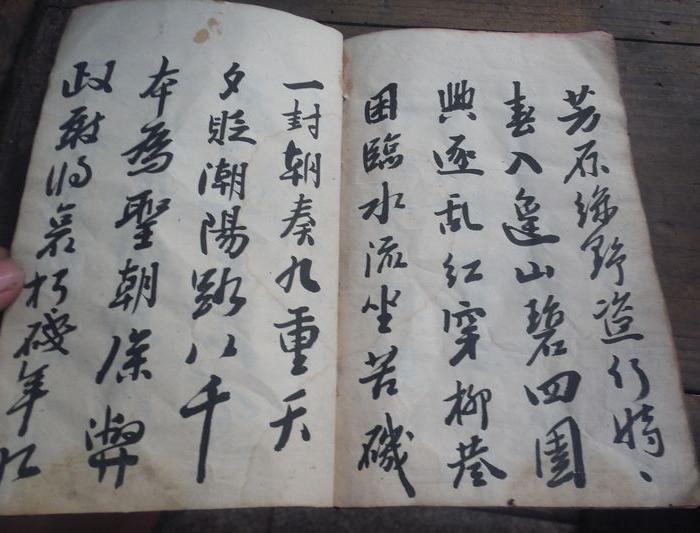 芳原綠野恣行時、
春入遙山碧四圍
興逐乱紅穿柳巷
困臨水流坐苔磯
一封朝奏九重天
夕貶潮陽路八千
本為聖朝除弊
政敢將衰朽殘年